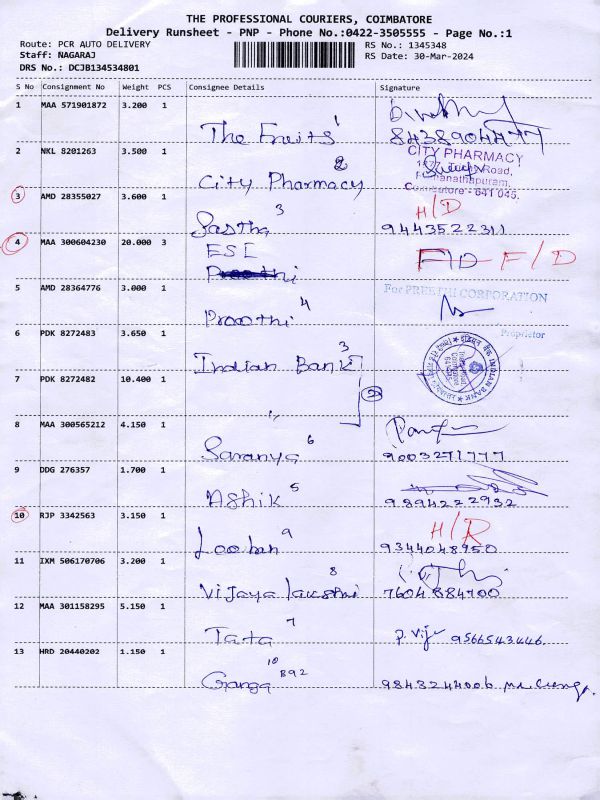 THE PROFESSIONAL COURIERS, COIMBATORE
Delivery Runsheet - PNP - Phone No.:0422-3505555 - Page No.:1
Route: PCR AUTO DELIVERY RS No.: 1345348
Staff: NAGARAJ RS Date: 30-Mar-2024
DRS No.: DCJB134534801
S No Consignment No Weight PCS Consignee Details Signature
1 MAA 571901872 3.200 1
The Fruits 1 8438904477
2 NKL 8201263 3.500 1
City Pharmacy 2 CITY PHARMACY
Road,
Ramanathapuram,
Coimbatore - 641 045.
3 AMD 28355027 3.600 1 H/D
Sastha 3 9443522311
4 MAA 300604230 20.000 3 ESI F/D - F/D
Preethi
5 AMD 28364776 3.000 1 For PREETHI CORPORATION
Preethi 4
Proprietor
6 PDK 8272483 3.650 1
Indian Bank 3 INDIAN BANK
7 PDK 8272482 10.400 1 2
8 MAA 300565212 4.150 1
Saranya 6 9003271777
9 DDG 276357 1.700 1
Ashik 5 9894222932
10 RJP 3342563 3.150 1 H/R
9 9344048950
11 IXM 506170706 3.200 1
Vijaya lakshmi 8 7604884700
12 MAA 301158295 5.150 1
Tata 7 P. Vij 9566543446.
13 HRD 20440202 1.150 1
Ganga 10 892 9843244006